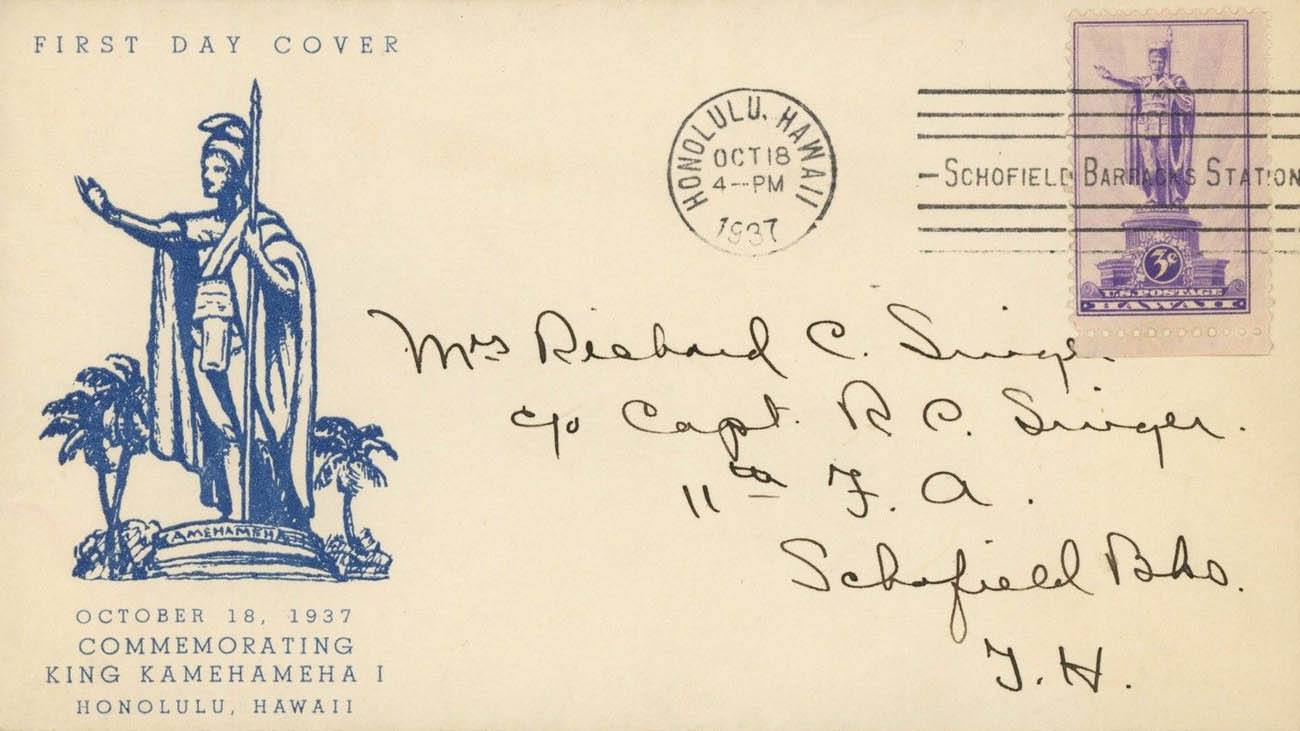 FIRST DAY COVER
AMEHAMEHA
OCTOBER 18, 1937
COMMEMORATING
KING KAMEHAMEHA I
HONOLULU, HAWAII
HONOLULU, HAWAII
OCT 18
4--PM
1937
-SCHOFIELD BARRACKS STATION
3¢
U.S. POSTAGE
HAWAII
Mrs Richard C. Singer.
c/o Capt. R. C. Singer.
11th F. A.
Schofield Bks.
T. H.